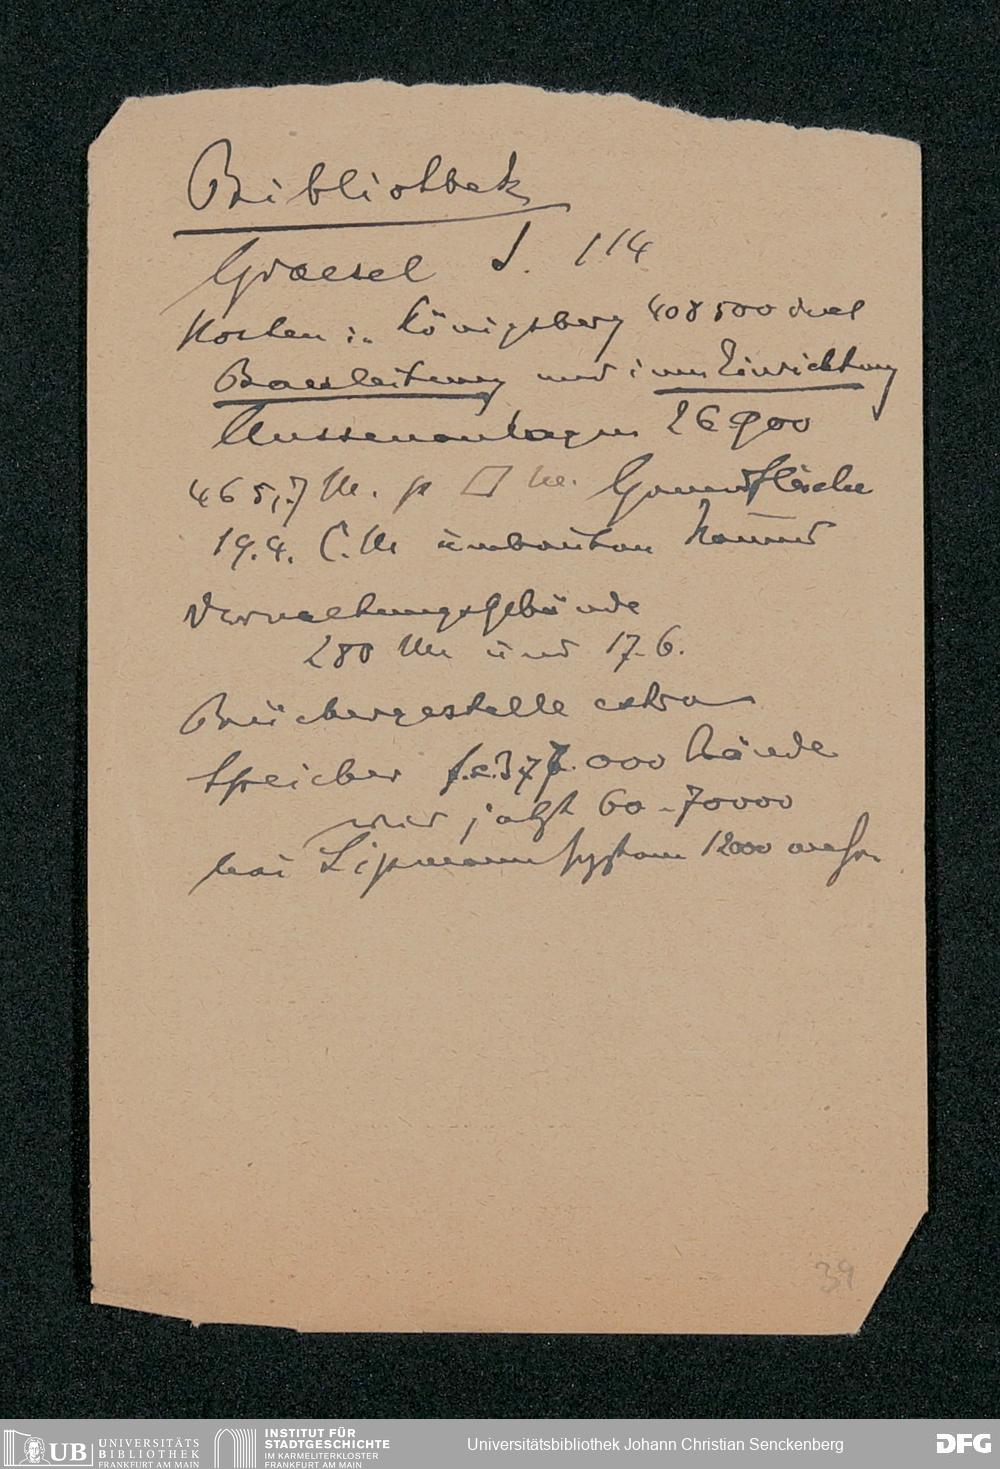 Bibliothek
Graesel S. 114
Kosten in Königsberg 408500 incl
Bauleitung und inn Einrichtung
Aussenanlagen 26900
465,7 M. p □ M. Grundfläche
19.4. C. M umbauten Raum
Verwaltungsgebäude
280 M und 17.6.
Büchergestelle extra
Speicher f. c. 377.000 Bände
wir jetzt 60-70000
bei Lipmann System 12000 mehr
39
UB UNIVERSITÄTS
BIBLIOTHEK
FRANKFURT AM MAIN
INSTITUT FÜR
STADTGESCHICHTE
IM KARMELITERKLOSTER
FRANKFURT AM MAIN
Universitätsbibliothek Johann Christian Senckenberg
DFG